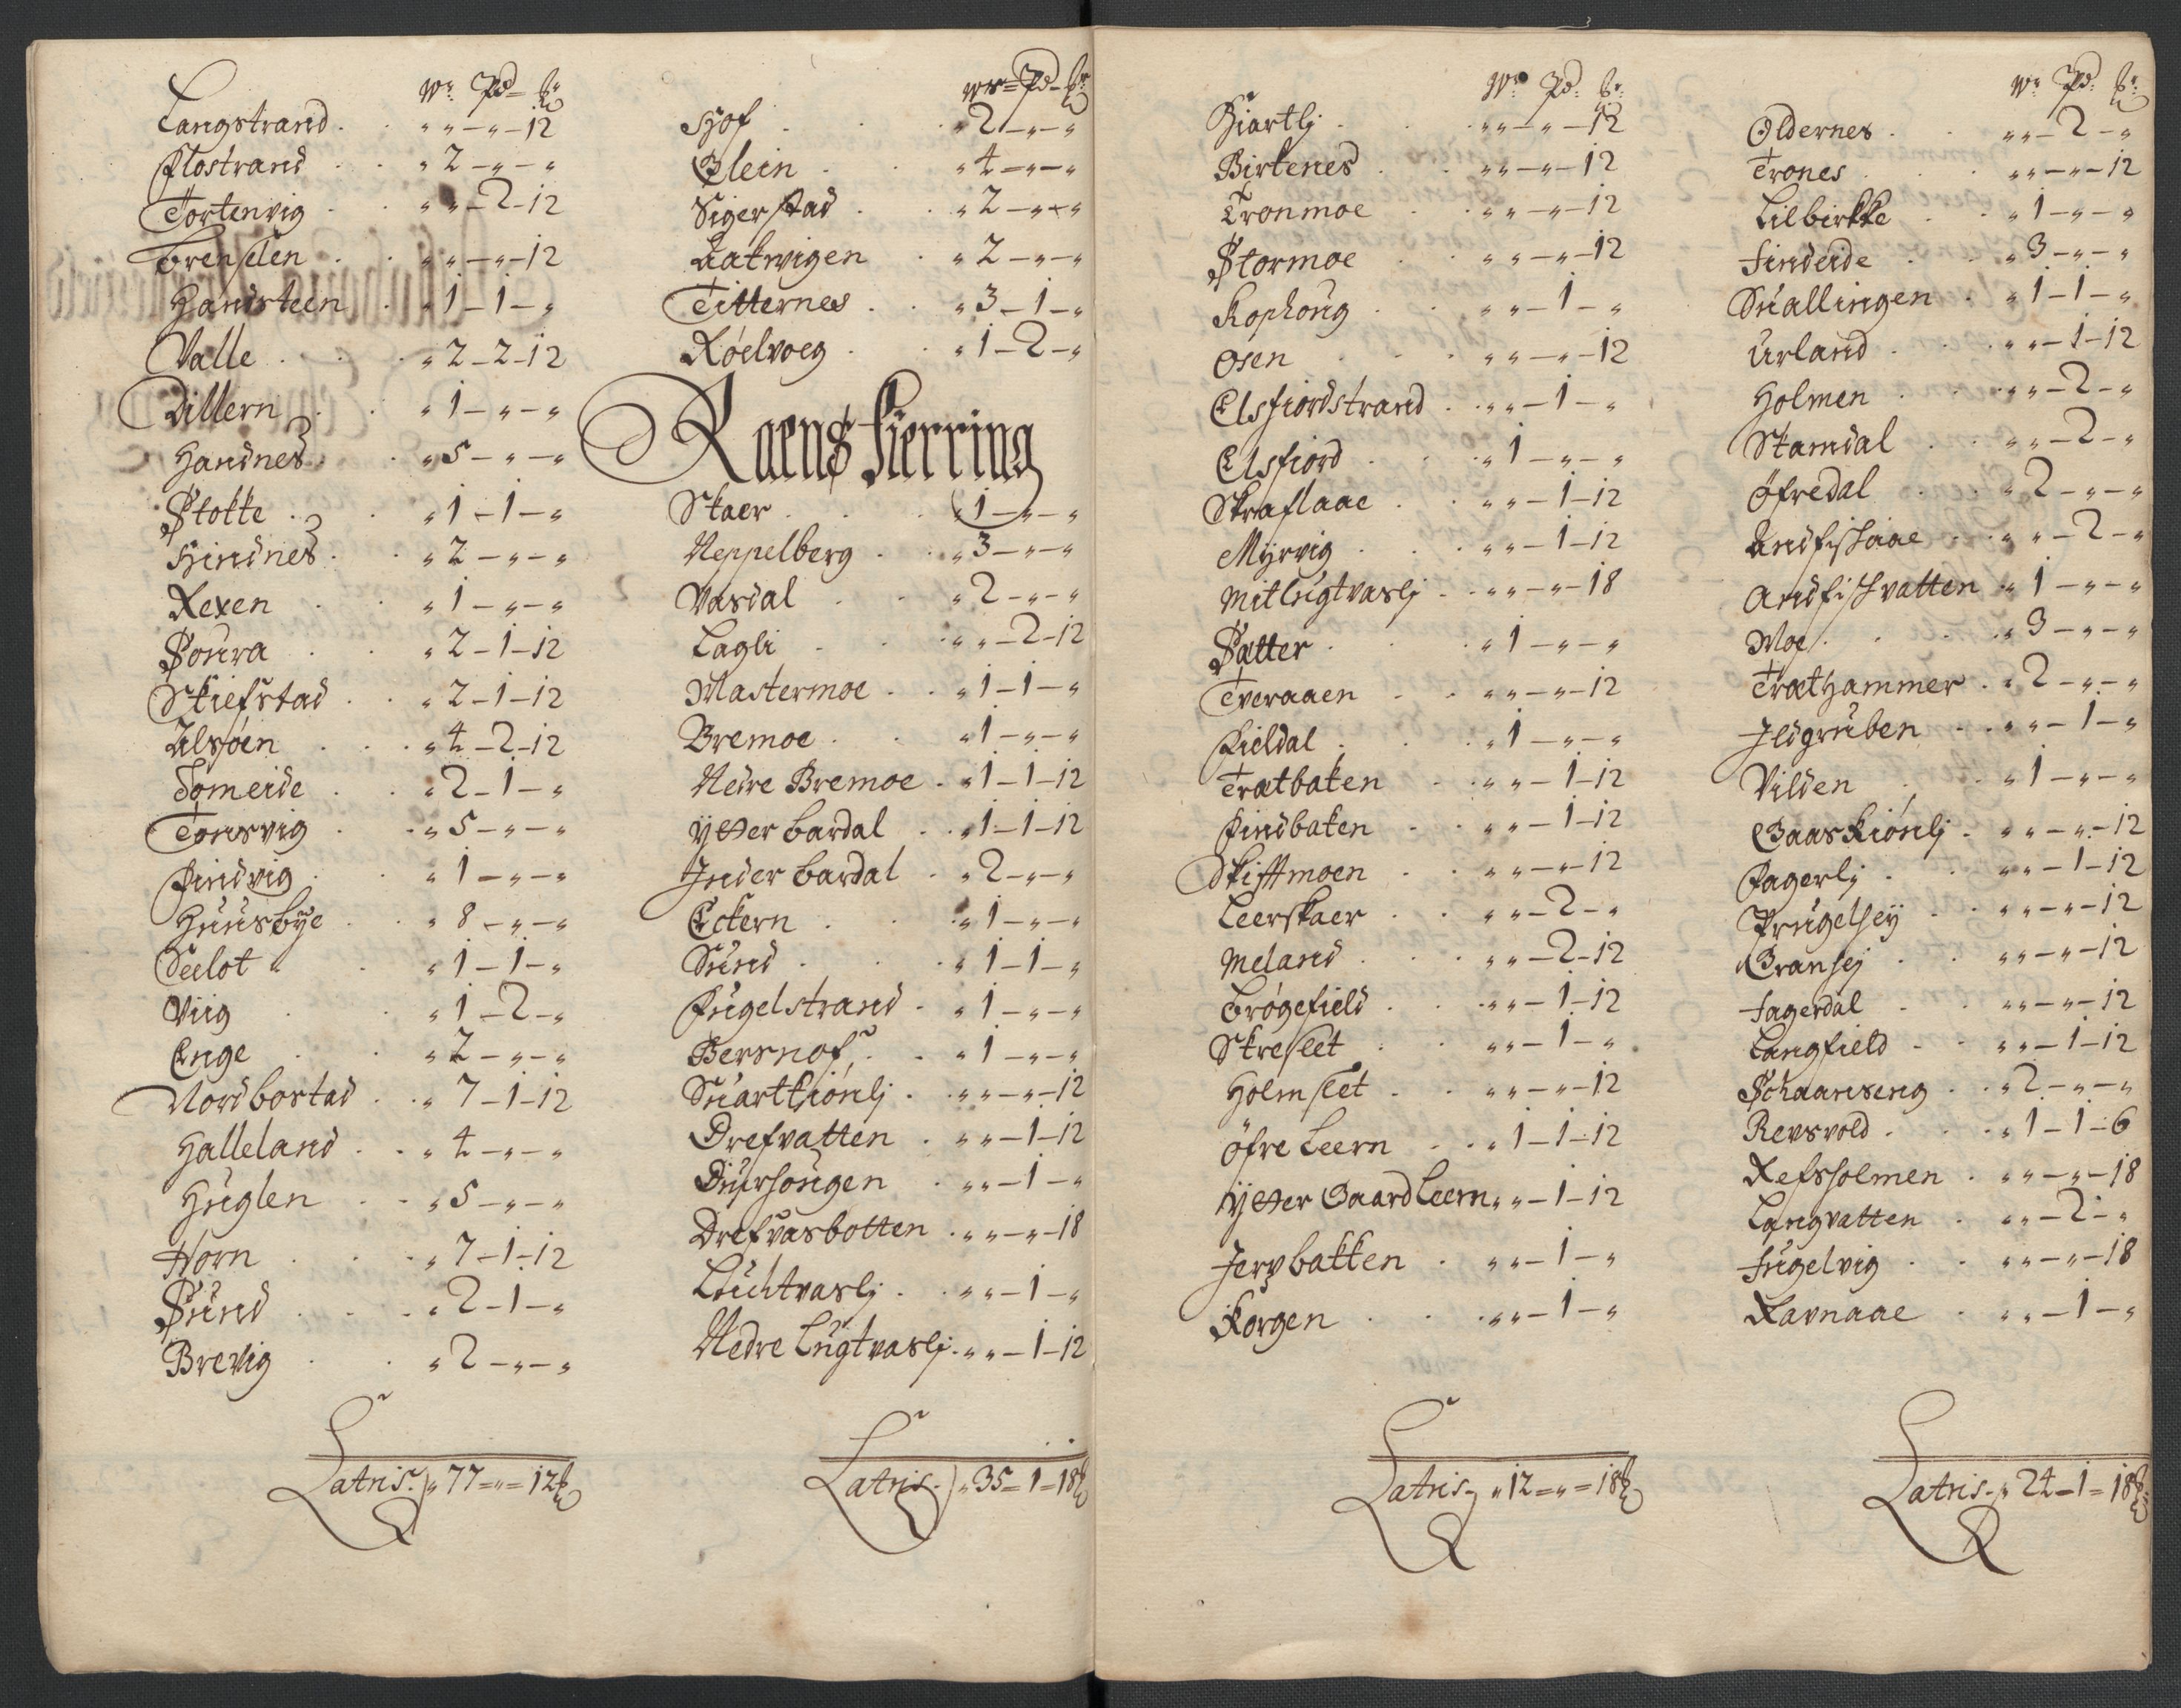 Wr: Pd= lb
Langstrand . „ „ – „ – 12
Flostrand . . „ 2 – „ – „
Tortenvig . . „ „ – 2 – 12
Brenslen . . „ „ – „ – 12
Handsteen . „ 1 – 1 – „
Valle . . . „ 2 – 2 – 12
Dillern . . „ 1 – „ – „
Handnes . . „ 5 – „ – „
Stokke . . „ 1 – 1 – „
Hindnes . . „ 2 – „ – „
Xexen . . „ 1 – „ – „
Soura . . „ 2 – 1 – 12
Skiefstad . . „ 2 – 1 – 12
Ulsøen . . „ 4 – 2 – 12
Someide . . „ 2 – 1 – „
Tonsvig . . „ 5 – „ – „
Findvig . . „ 1 – „ – „
Huusbye . . „ 8 – „ – „
Seelot . . „ 1 – 1 – „
Viig . . „ 1 – 2 – „
Enge . . „ 2 – „ – „
Nordbostad . . „ 7 – 1 – 12
Halleland . . „ 4 – „ – „
Huglen . . „ 5 – „ – „
Horn . . „ 7 – 1 – 12
Sund . . . „ 2 – 1 – „
Brevig . . „ 2 – „ – „
Latris. „ 77 = „ = 12 lb
Wr = Pd – lb
Hof . . „ 2 – „ – „
Glein . . „ 4 = „ – „
Sigerstad . . „ 2 – „ – „
Aakvigen . „ 2 – „ – „
Titternes . . „ 3 – 1 – „
Røelvoeg . . „ 1 – 2 – „
Raens fierring
Skaer . . „ 1 – „ – „
Neppelberg . . „ 3 – „ – „
Vasdal . . „ 2 – „ – „
Lagli . . „ „ – 2 – 12
Mastermoe . . „ 1 – 1 – „
Bremoe . . „ 1 – „ – „
Nedre Bremoe . „ 1 – 1 – 12
Ytter bardal . . „ 1 – 1 – 12
Inder bardal . „ 2 – „ – „
Eckern . . „ 1 – „ – „
Sund . . „ 1 – 1 – „
Fugelstrand . „ 1 – „ – „
Bersnof . . „ 1 – „ – „
Suartkiønlj . . „ „ – „ – 12
Drefvatten . „ „ – 1 – 12
Diurhougen . „ „ – 1 – „
Drefvasbotten . „ „ – „ – 18
Luchtvaslj . . „ „ – 1 – „
Nedre Lugtvaslj . „ „ – 1 – 12
Latris. „ 35 = 1 = 18 lb
Wr Pd: lb:
Hiartlj . . „ „ – „ – 12
Birkenes . . „ „ – „ – 12
Tronmoe . . „ „ – „ – 12
Stormoe . . „ „ – „ – 12
Kophoug . . „ „ – 1 – „
Osen . . „ „ – „ – 12
Elsfiordstrand . . „ „ – 1 – „
Elsfiord . . „ 1 – „ – „
Skraflaae . . „ „ – 1 – 12
Myrvig . . „ „ – 1 – 12
Mitlugtvaslj . . „ „ – „ – 18
Sætter . . „ 1 – „ – „
Tveraaen . . „ „ – „ – 12
Fieldal . . „ 1 – „ – „
Trætbaken . . „ „ – 1 – 12
Findbaken . . „ „ – 1 – 12
Skiftmoen . . „ „ – „ – 12
Leerskaer . . „ „ – 2 – „
Meland . . „ „ – 2 – 12
Brøgefield . . „ „ – 1 – 12
Skresleet . . „ „ – 1 – „
Holmsleet . . „ „ – „ – 12
Øfre Leern . . „ 1 – 1 – 12
Ytter Gaard Leern „ „ – 1 – 12
Jervbakken . „ „ – 1 – „
Korgen . . „ „ – 1 – „
Latris. „ 12 = „ = 18 lb
Wr Pd: lb:
Oldernes . . „ „ – 2 – „
Trones . . „ „ – „ – 12
Lilbirkke . . „ 1 – „ – „
Findeide . . „ 3 – „ – „
Suallingen . „ 1 – 1 – „
Urland . . „ „ – 1 – 12
Holmen . . „ „ – 2 – „
Stamdal . . „ „ – 2 – „
Øfredal . . „ 2 – „ – „
Andfiskaae . . „ „ – 2 – „
Andfiskvatten „ 1 – „ – „
Moe . . „ 3 – „ – „
Træthammer . „ 2 – „ – „
Ildgruben . . „ „ – 1 – „
Vilden . . „ 1 – „ – „
Gaaskiønlj . „ „ – „ – 12
Fagerlj . . „ „ – 1 – 12
Prugelhej . . „ „ – „ – 12
Granhej . . „ „ – „ – 12
Fagerdal . . „ „ – „ – 12
Langfield . . „ „ – 1 – 12
Schaanseng . . „ 2 – „ – „
Revsvold . . „ 1 – 1 – 6
Refsholmen . „ „ – „ – 18
Langvatten . „ „ – 2 – „
Fugelvig . . „ „ – „ – 18
Ravnaae . „ „ – 1 – „
Latris. „ 24 – 1 = 18 lb